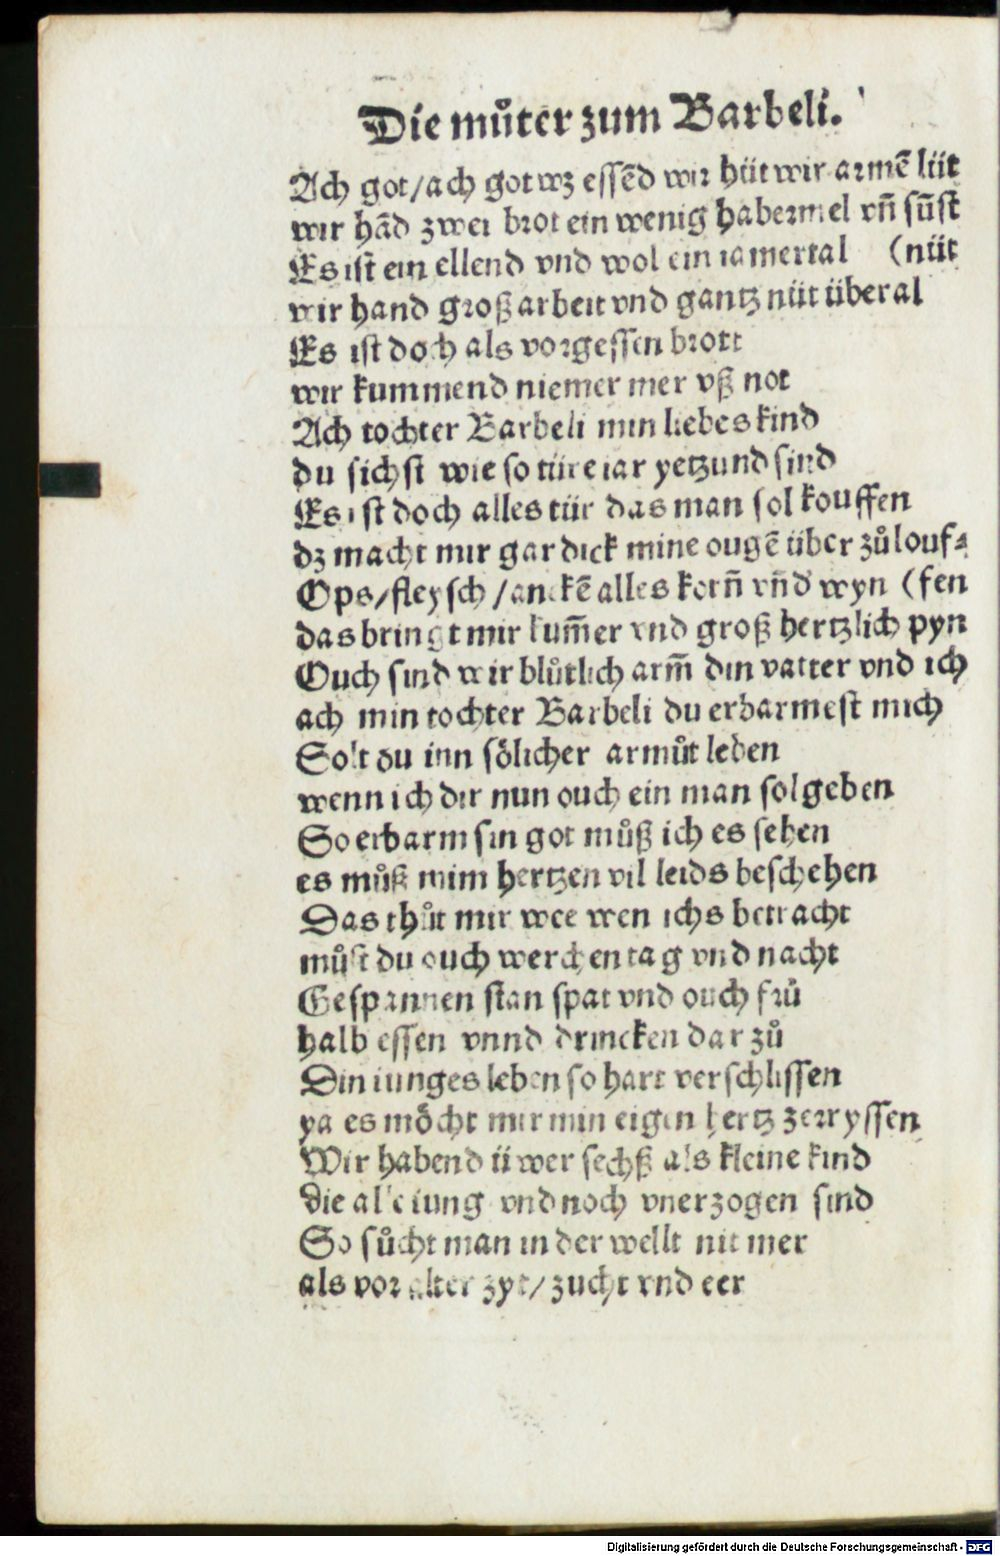 Die muͦter zum Barbeli.
Ach got/ach got wz essẽd wir hüt wir armẽ lüt
wir hãd zwei brot ein wenig habermel vñ sũst
Es ist ein ellend vnd wol ein iamertal (nüt
wir hand groß arbeit vnd gantz nüt überal
Es ist doch als vorgessen brott
wir kummend niemer mer vß not
Ach tochter Barbeli min liebes kind
du sichst wie so türe iar yetzund sind
Es ist doch alles tür das man sol kouffen
dz macht mir gar dick mine ougẽ über zuͦ louf⸗
Ops/fleysch/anckẽ alles korñ vñd wyn (fen
das bringt mir kum̃er vnd groß hertzlich pyn
Ouch sind wir bluͦtlich arm̃ din vatter vnd ich
ach min tochter Barbeli du erbarmest mich
Solt du inn soͤlicher armuͦt leben
wenn ich dir nun ouch ein man sol geben
So erbarm sin got muͦß ich es sehen
es muͦß mim hertzen vil leids beschehen
Das thuͦt mir wee wen ichs betracht
muͦst du ouch werchen tag vnd nacht
Gespannen stan spat vnd ouch fruͦ
halb essen vnnd drincken dar zuͦ
Din iunges leben so hart verschlissen
ya es moͤcht mir min eigen hertz zerryssen
Wir habend üwer sechß als kleine kind
die alle iung vnd noch vnerzogen sind
So suͦcht man in der wellt nit mer
als vor alter zyt/zucht vnd eer
Digitalisierung gefördert durch die Deutsche Forschungsgemeinschaft - DFG